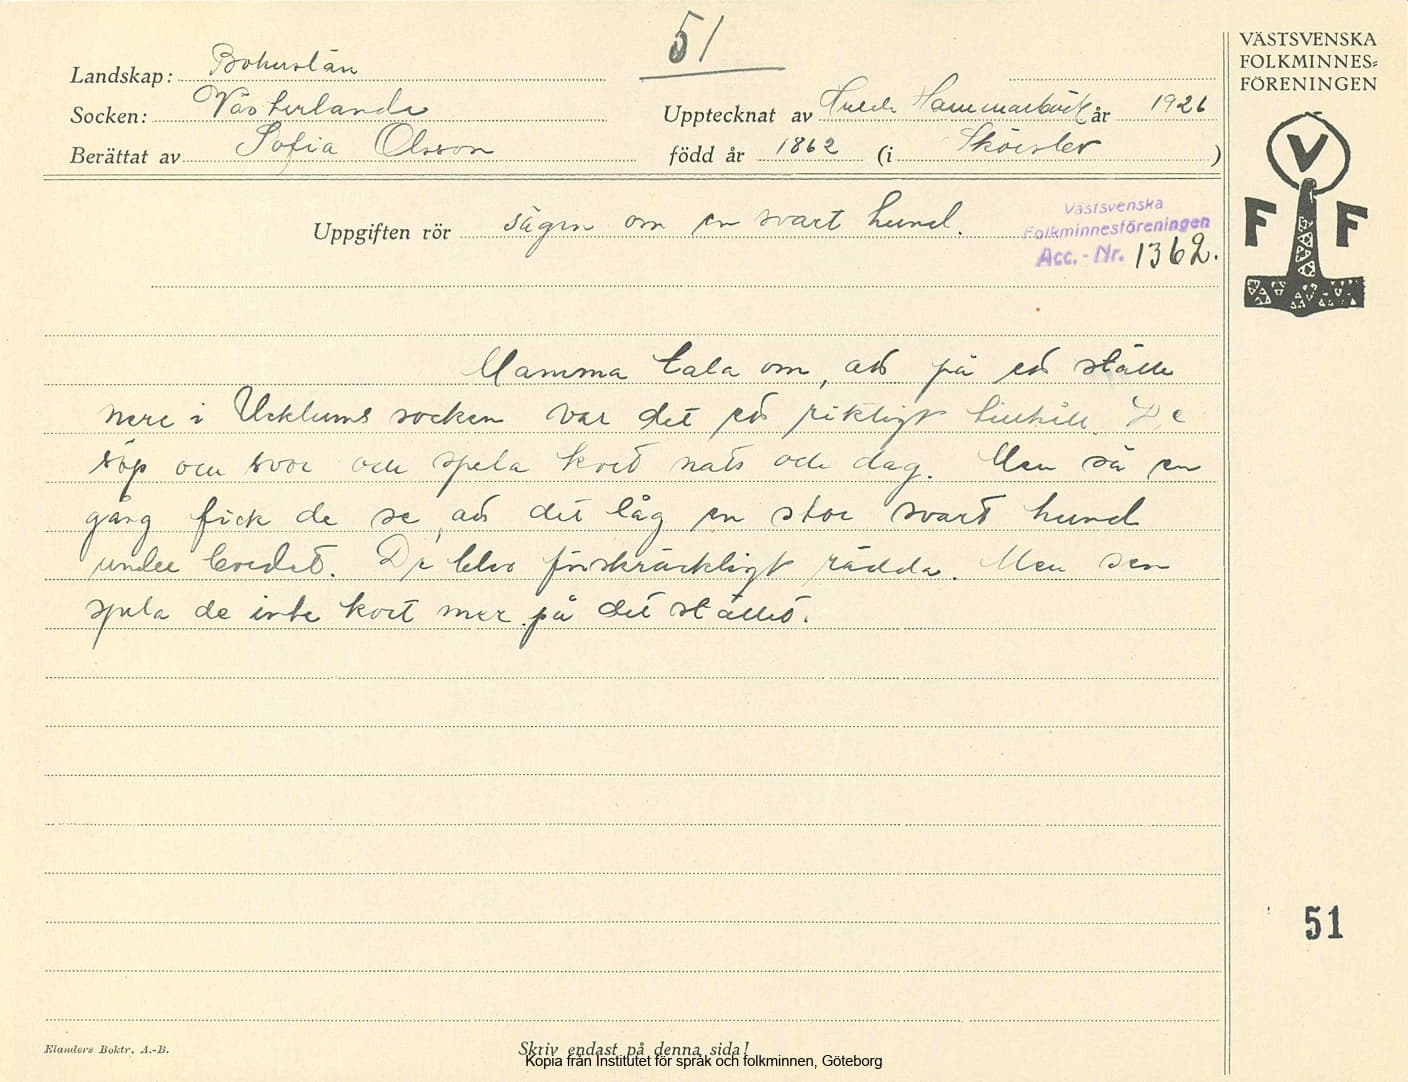 51
VÄSTSVENSKA
FOLKMINNES=
FÖRENINGEN
Landskap: Bohuslän
Socken: Västerlanda
Upptecknat av Hammarbäck år 1926
Berättat av Sofia Olsson
född år 1862 (i )
Uppgiften rör sägen om en svart hund.
Västsvenska
Folkminnesföreningen
Acc.-Nr. 1362.
V
F F
Mamma tala om, att på ett ställe
nere i Ucklums socken var det ett riktigt tillhåll. De
söp och svor och spela kort natt och dag. Men så en
gång fick de se, att det låg en stor svart hund
under bordet. De blev förskräckligt rädda. Men sen
spela de inte kort mer på det stället.
51
Elanders Boktr. A.-B.
Skriv endast på denna sida!
Kopia från Institutet för språk och folkminnen, Göteborg